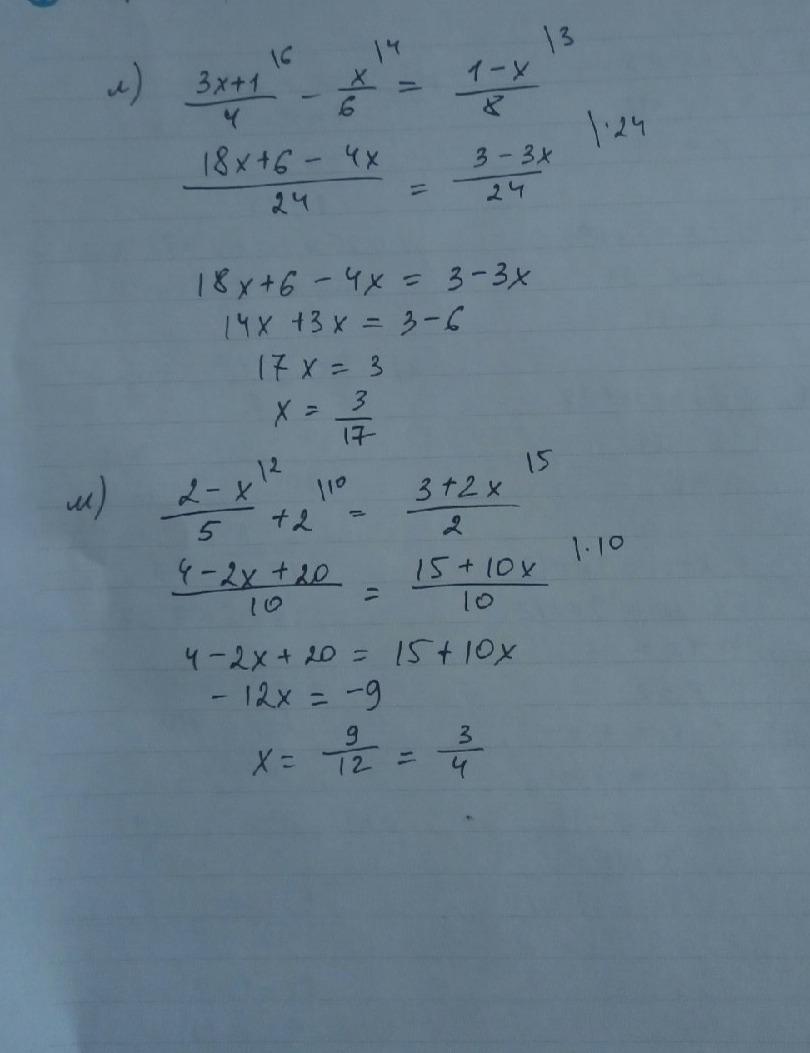 л) (3x+1)/4 \6 - x/6 \4 = (1-x)/8 \3
(18x+6-4x)/24 = (3-3x)/24 |·24
18x+6-4x = 3-3x
14x+3x = 3-6
17x = 3
x = 3/17
м) (2-x)/5 \2 +2 \10 = (3+2x)/2 \5
(4-2x+20)/10 = (15+10x)/10 |·10
4-2x+20 = 15+10x
-12x = -9
x = 9/12 = 3/4